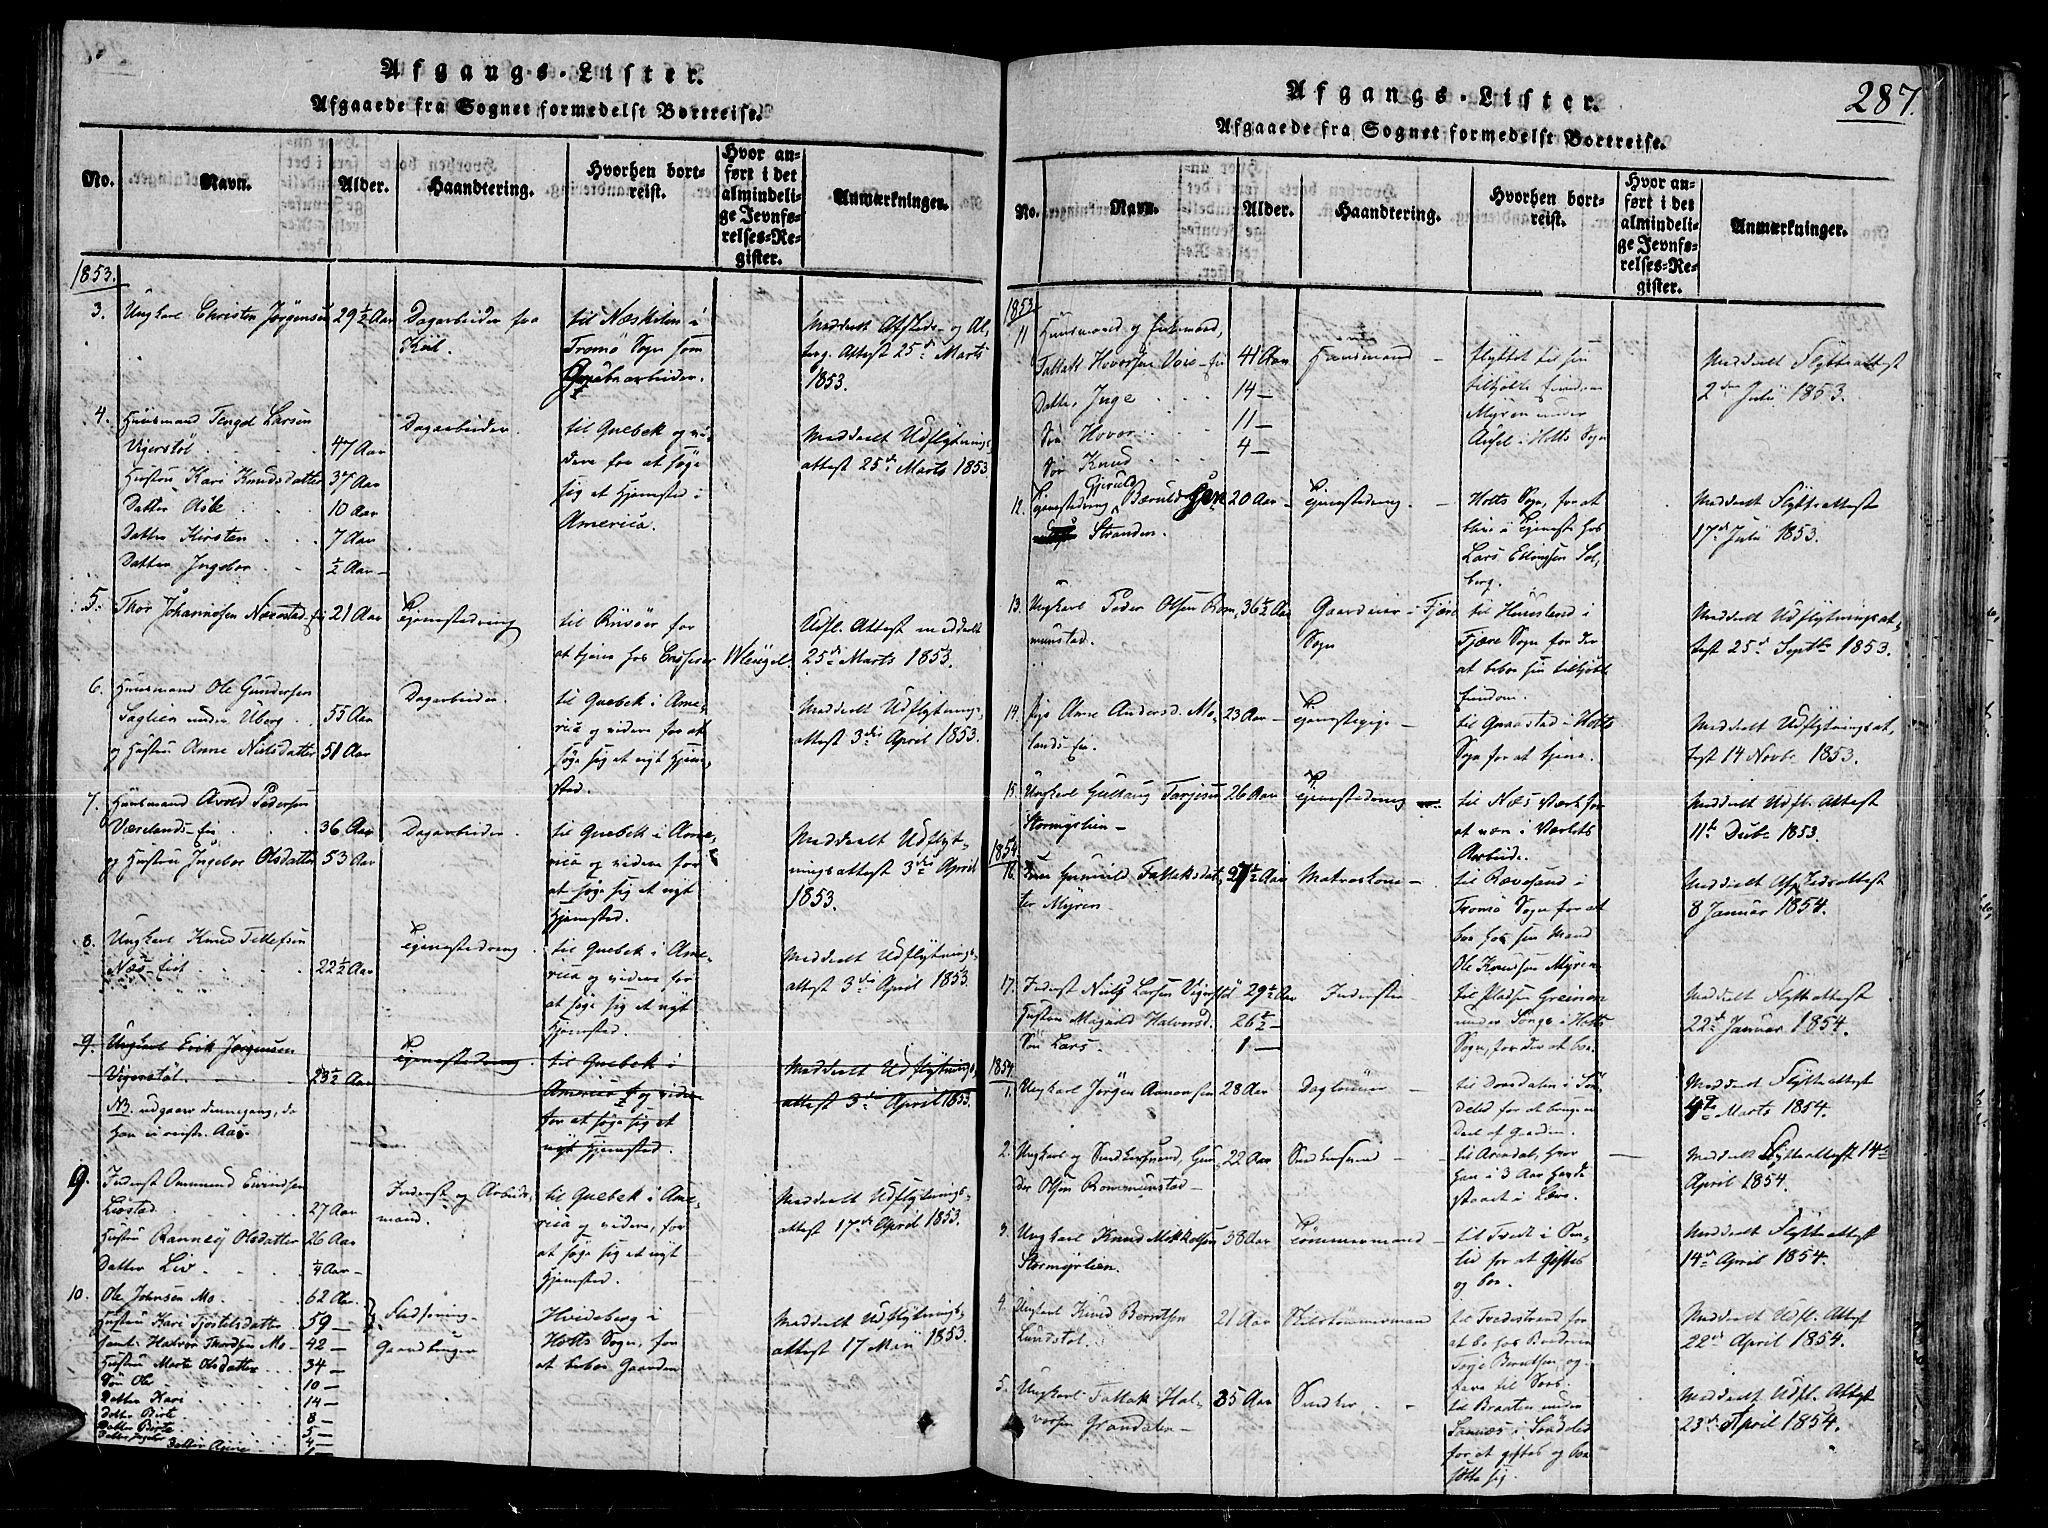 Afgangs-Lister.
Afgaaede fra Sognet formedelst Bortreise.
No.
Navn.
Alder.
Haandtering.
Hvorhen bort-
reist.
Hvor an-
ført i det
almindeli-
ge Jevnfø-
relses-Re-
gister.
Anmærkninger.
1853.
3.
Ungkarl Christen Jörgensen
29½ Aar
Dagarbeider fra
til Næskilen i
Tromö Sogn som
Meddeelt Afsteds- og
Attest 25de Marts
1853.
4.
Huusmand Tengel Larsen
Vigerstöl
47 Aar
Hustru Kari Knudsdatter
37 Aar
Datter Asle
10 Aar
Datter Kirsten
7 Aar
Datter Ingebor
½ Aar
Dagarbeider.
til Quebek og vi-
dere for at søge
sig et Hjemsted i
America.
Meddeelt Udflytnings-
attest 25de Marts 1853
5.
Thor Johannesen Næsstad
21 Aar
Tjenestedreng
til Riisöer for
at tjene hos
Udfl. Attest meddeelt
25de Marts 1853.
6.
Huusmand Ole Gundersen
under Uberg
55 Aar
og Hustru Anne Nielsdatter
51 Aar
Dagarbeider
til Quebek i Ame-
rica og videre for at
søge sig et nyt Hjem-
sted.
Meddeelt Udflytnings-
attest 3die April 1853.
7.
Huusmand Arold Pedersen
Værelands-Eie
36 Aar
og Hustru Ingebor Olsdatter
53 Aar
Dagarbeider
til Quebek i Ame-
rica og videre for
at søge sig et nyt
Hjemsted.
Meddeelt Udflyt-
ningsattest 3die April
1853.
8.
Ungkarl Knud Tellefsen
Næs-Eiet
22½ Aar
Tjenestedreng
til Quebek i Ame-
rica og videre for
at søge sig et nyt
Hjemsted.
Meddeelt Udflytnings-
attest 3die April 1853.
9.
Ungkarl Erik Jørgensen
Vigerstøl.
23½ Aar
Tjenestedreng
til Quebek i
America og videre
for at søge sig et
nyt Hjemsted.
Meddeelt Udflytnings-
attest 3die April 1853.
NB. udgaaer dennegang, da
han ei reiste. Aas.
9.
Inderst Ommund Eivindsen
Liestad
27 Aar
Hustru Ranneÿ Olsdatter
26 Aar
Datter Liv
¼ Aar
Inderst og Arbeids-
mand.
til Quebek i Ame-
rica og videre, for
at søge sig et nyt
Hjemsted.
Meddeelt Udflytnings-
attest 17de April 1853.
10.
Ole Johnsen Mo
62 Aar
Hustru Kari Kjöstelsdatter
59
samt Halvor Thordsen Mo
42
Hustru Marte Olsdatter
34
Sön Ole
10
Datter Kari
14
Datter Birte
8
Datter Birte
5
Datter Ingebor
4
Datter Anne
Gaardbruger
Hvideberg i
Holts Sogn, for
at beboe Gaarden
Meddeelt Udflytnings-
attest 17 Mai 1853.
Afgangs-Lister.
287.
Afgaaede fra Sognet formedelst Bortreise.
No.
Navn.
Alder.
Haandtering.
Hvorhen bort-
reist.
Hvor an-
ført i det
almindeli-
ge Jevnfø-
relses-Re-
gister.
Anmærkninger.
1853.
11
Huusmand og
Tallak Hovorsen Veie
41 Aar
Datter, Inge
14
Sön Hovor
11
Sön Knud
4
Huusmand
flyttet til sin
tilkjøbte Eiendom
Myren under
i Holts Sogn
Meddeelt Flytteattest
2den Juli 1853.
12.
Tjenestedreng
Gjeruld
Stranden.
20 Aar
Tjenestedreng
Holts Sogn, for at
blive i Tjeneste hos
Lars Ellingsen Sol-
berg.
Meddeelt Flytteattest
17de Juli 1853.
13.
Ungkarl Peder Olsen Rom-
munstad.
36½ Aar
Gaardeier i Fjære
Sogn
til
Fjære Sogn for der
at beboe sin tilkjøbte
Eiendom.
Meddeelt Udflytningsat-
test 25de Septbr 1853.
14.
Pige Anne Andersd. Mo-
lands-Eie.
23 Aar
Tjenestepige
til Graastad i Holts
Sogn for at tjene.
Meddeelt Udflytningsat-
test 14 Novbr 1853.
15
Ungkarl Gulleug Tarjesen
Stormyrlien
26 Aar
Tjenestedreng
til Næs Værk for
at være i Værkets
Arbeide.
Meddeelt Udfl. Attest
11te Decbr 1853.
1854
16.
Kone Gunnild Tallaksdat-
ter Myren
27½ Aar
Matroskone
til Revesand i
Tromö Sogn for at
boe hos sin Mand
Ole Knudsen Myren
Meddeelt Afstedsattest
8 Januar 1854.
17.
Inderst Niels Larsen Vigerstöl
29½ Aar
Hustru Magnild Halvorsd.
26½
Sön Lars
1
Inderster
til Pladsen Greinen
under Songe i Holts
Sogn, for der at boe.
Meddeelt Flytteattest
22de Januar 1854.
1854.
1.
Ungkarl Jörgen Aanonsen
28 Aar
Daglönner
til Dorsdalen i Sön-
deled for at bruge en
Deel af Gaarden.
Meddeelt Flytteattest
4de Marts 1854.
2.
Ungkarl og Snedkersvend, Gun-
der Olsen Rommunstad
22 Aar
Snedkersvend
til Arendal, hvor
han i 3 Aar havde
staaet i Lære.
Meddeelt Flytteattest 14de
April 1854.
3.
Ungkarl Knud Mikkelsen
Stormyrlien.
38 Aar
Tömmermand
til Tvedt i Sön-
led for at giftes
og boe
Meddeelt Flytteattest
14de April 1854.
4.
Ungkarl Knud Berntsen
Lundstöl
21 Aar
Skibstömmermand
til Tvedestrand for
at boe hos Broderen
Terje Berntsen og
fare til Søes.
Meddeelt Udfl. Attest
22de April 1854.
5.
Ungkarl Tallak Hal-
vorsen Grandalen
35 Aar
Snedker
til Braaten under
i Söndeled
for at giftes og boe-
sætte sig.
Meddeelt Udfl. Attest
23de April 1854.